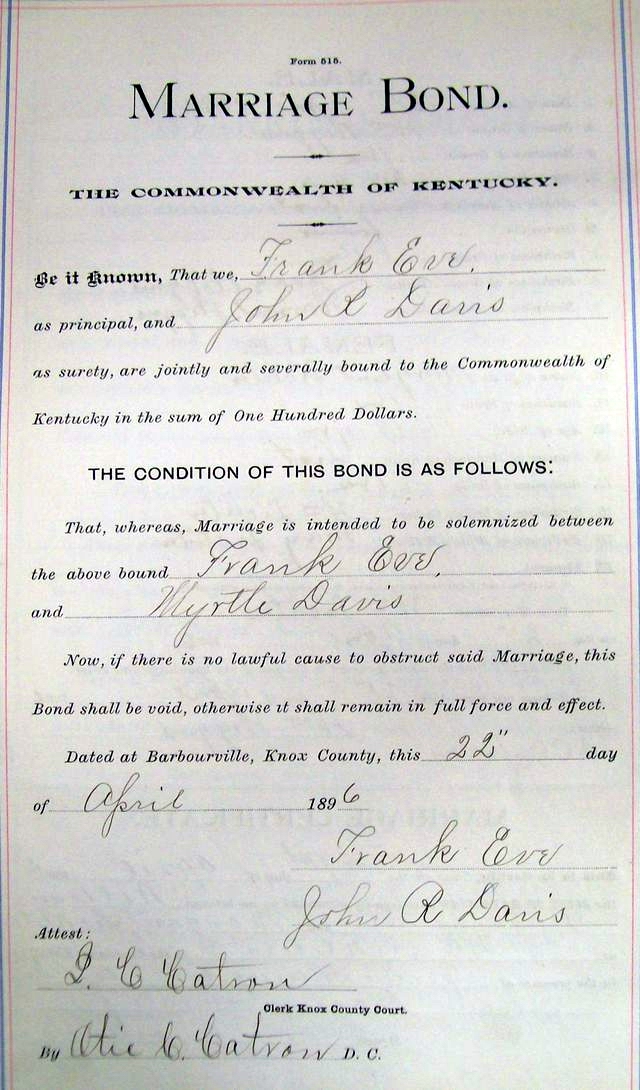 Form 515.
MARRIAGE BOND.
THE COMMONWEALTH OF KENTUCKY.
Be it Known, That we, Frank Eve.
as principal, and John R Davis
as surety, are jointly and severally bound to the Commonwealth of
Kentucky in the sum of One Hundred Dollars.
THE CONDITION OF THIS BOND IS AS FOLLOWS:
That, whereas, Marriage is intended to be solemnized between
the above bound Frank Eve.
and Myrtle Davis
Now, if there is no lawful cause to obstruct said Marriage, this
Bond shall be void, otherwise it shall remain in full force and effect.
Dated at Barbourville, Knox County, this 22" day
of April 1896
Frank Eve
John R Davis
Attest:
C Catron
Clerk Knox County Court.
By C. Catron D. C.